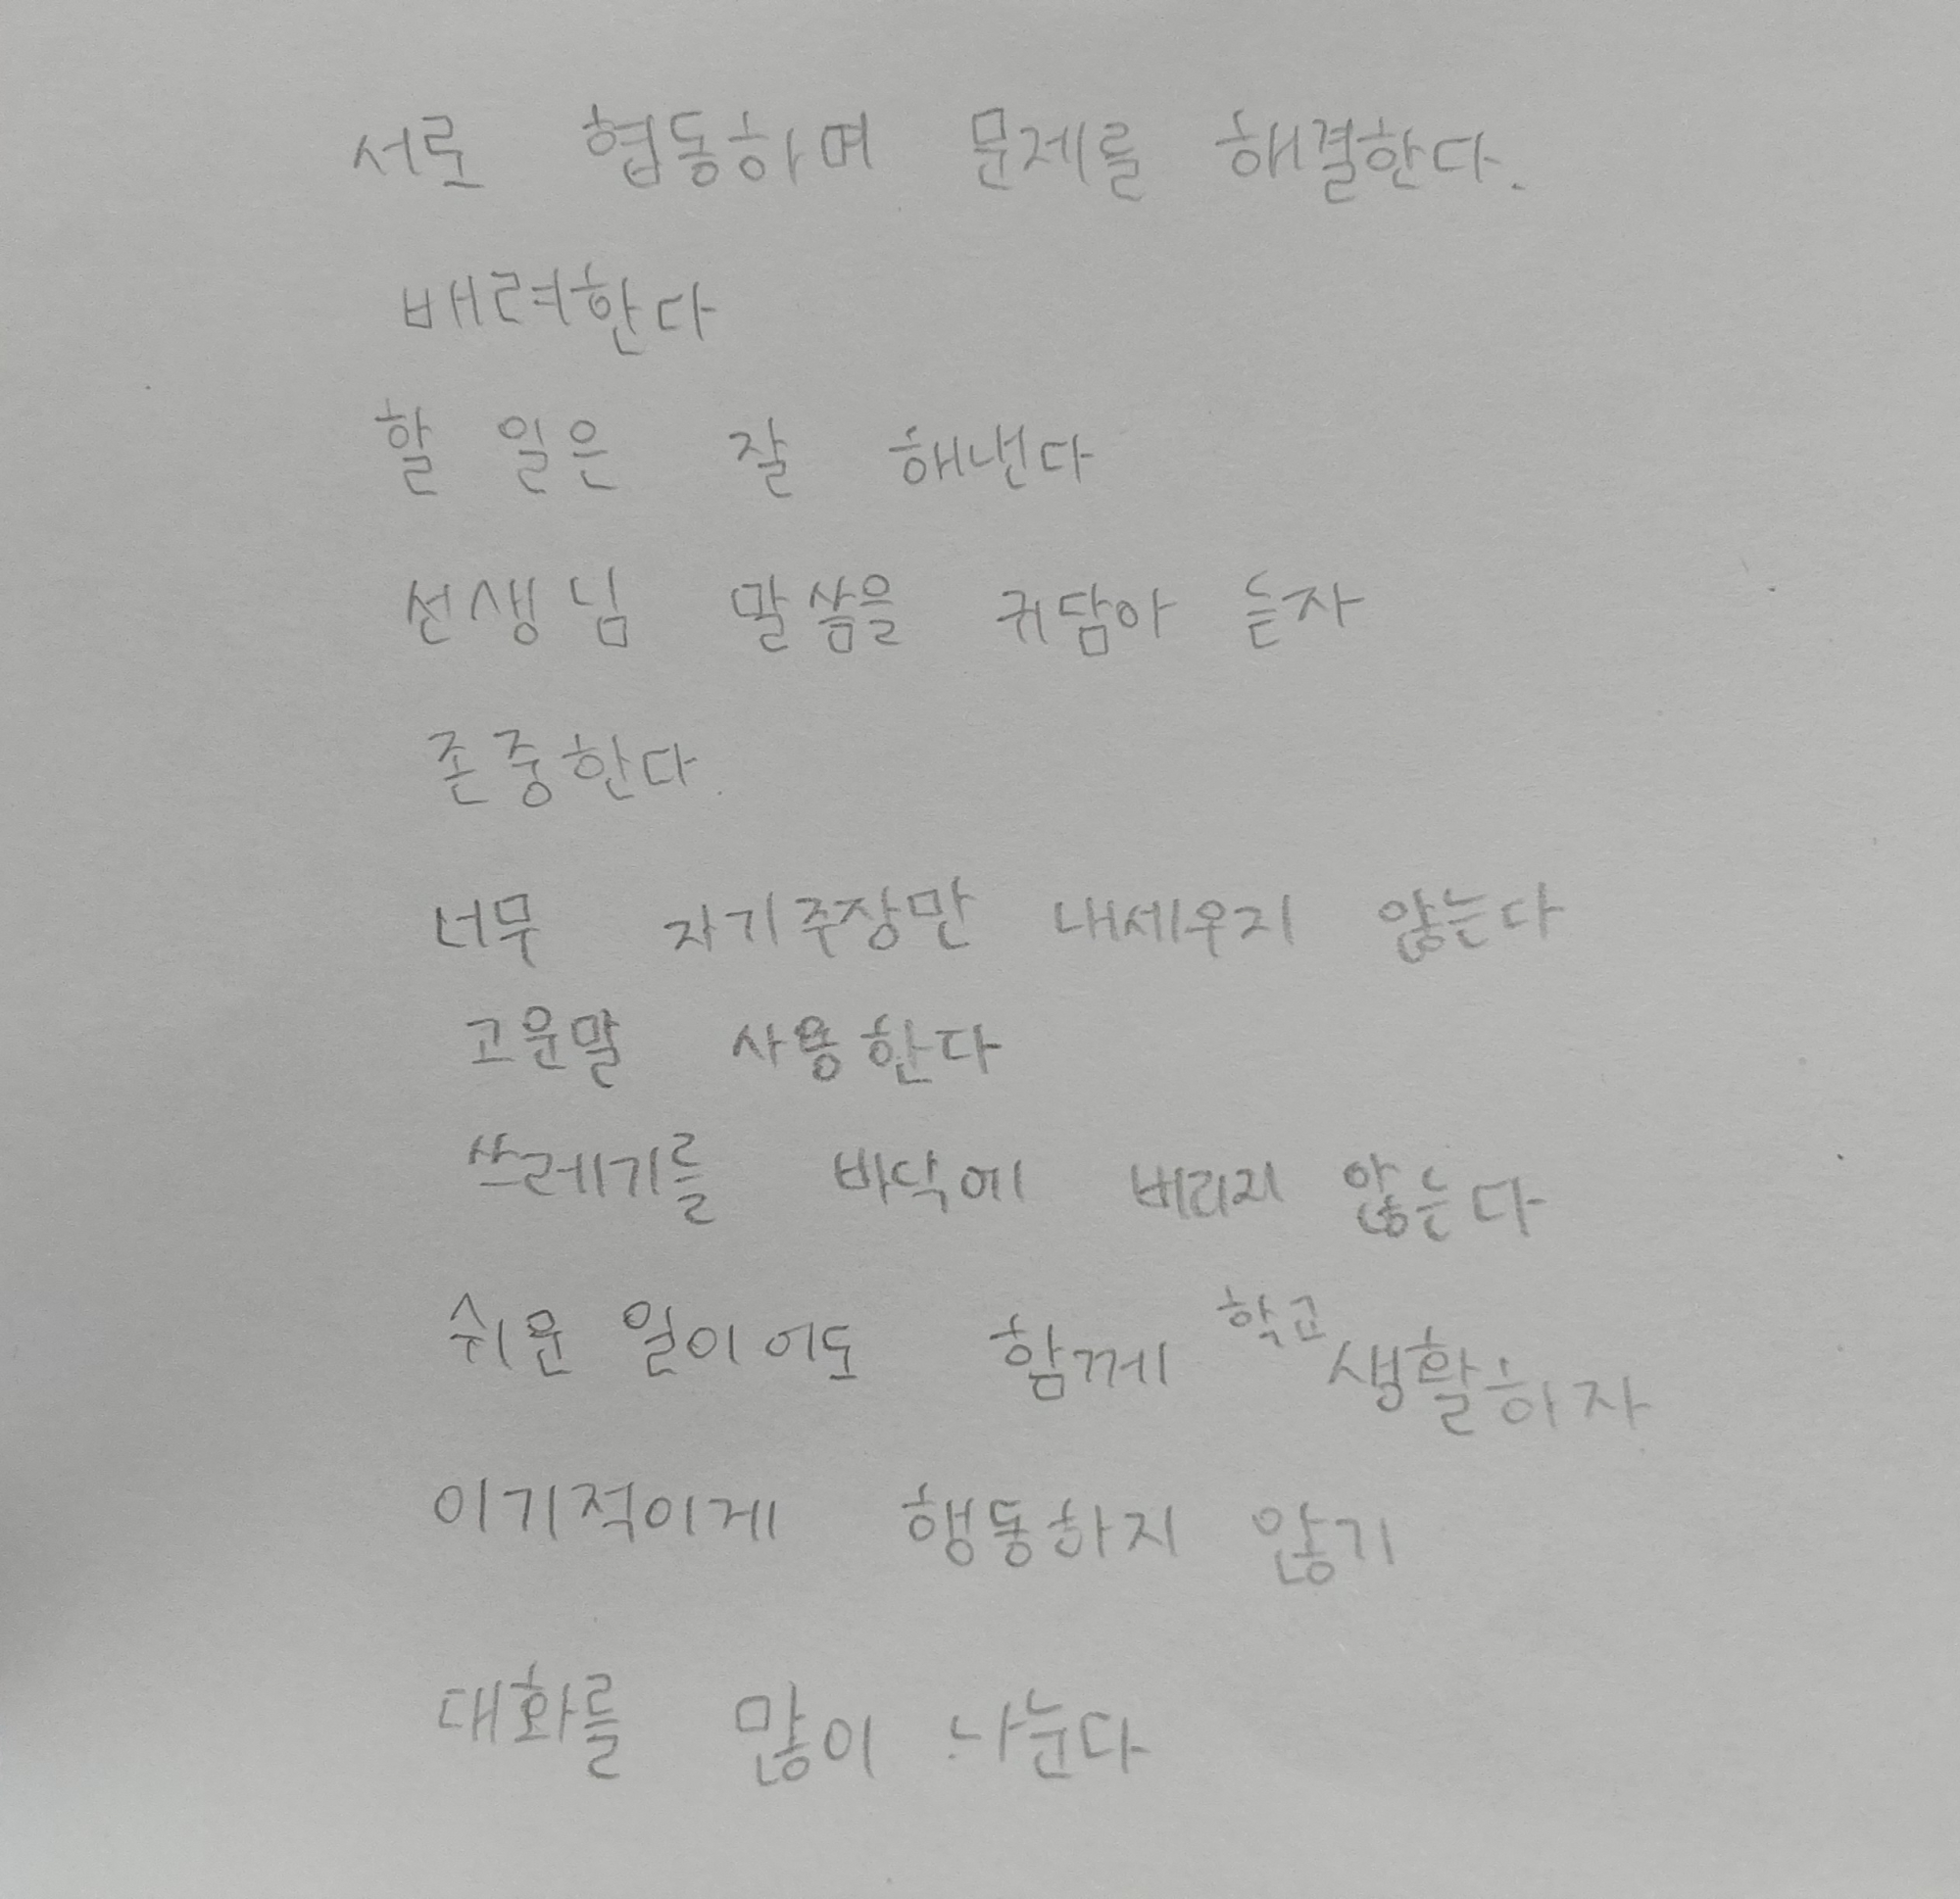 서로 협동하며 문제를 해결한다.
배려한다
할 일은 잘 해낸다
선생님 말씀을 귀담아 듣자
존중한다.
너무 자기주장만 내세우지 않는다
고운말 사용한다
쓰레기를 바닥에 버리지 않는다
쉬운 일이어도 함께 학교생활하자
이기적이게 행동하지 않기
대화를 많이 나눈다